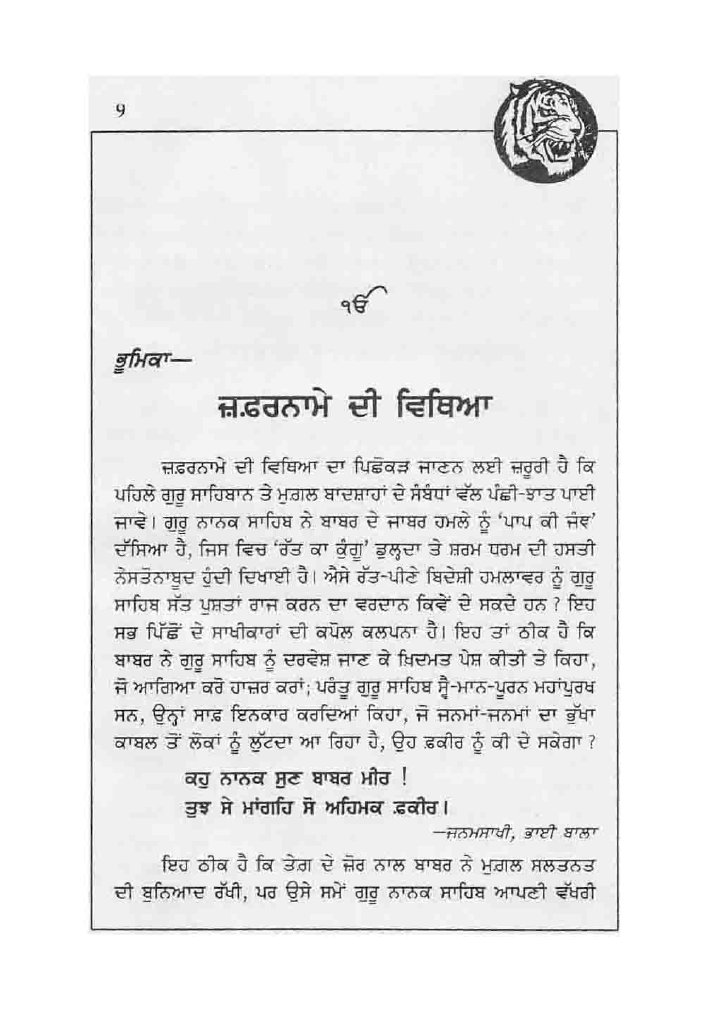 9
ੴ
ਭੂਮਿਕਾ—
ਜ਼ਫ਼ਰਨਾਮੇ ਦੀ ਵਿਥਿਆ
ਜ਼ਫ਼ਰਨਾਮੇ ਦੀ ਵਿਥਿਆ ਦਾ ਪਿਛੋਕੜ ਜਾਣਨ ਲਈ ਜ਼ਰੂਰੀ ਹੈ ਕਿ
ਪਹਿਲੇ ਗੁਰੂ ਸਾਹਿਬਾਨ ਤੇ ਮੁਗ਼ਲ ਬਾਦਸ਼ਾਹਾਂ ਦੇ ਸੰਬੰਧਾਂ ਵੱਲ ਪੰਛੀ-ਝਾਤ ਪਾਈ
ਜਾਵੇ। ਗੁਰੂ ਨਾਨਕ ਸਾਹਿਬ ਨੇ ਬਾਬਰ ਦੇ ਜਾਬਰ ਹਮਲੇ ਨੂੰ ‘ਪਾਪ ਕੀ ਜੰਞ’
ਦੱਸਿਆ ਹੈ, ਜਿਸ ਵਿਚ ‘ਰੱਤ ਕਾ ਕੁੰਗੂ’ ਡੁਲ੍ਹਦਾ ਤੇ ਸ਼ਰਮ ਧਰਮ ਦੀ ਹਸਤੀ
ਨੇਸਤੋਨਾਬੂਦ ਹੁੰਦੀ ਦਿਖਾਈ ਹੈ। ਐਸੇ ਰੱਤ-ਪੀਣੇ ਬਿਦੇਸ਼ੀ ਹਮਲਾਵਰ ਨੂੰ ਗੁਰੂ
ਸਾਹਿਬ ਸੱਤ ਪੁਸ਼ਤਾਂ ਰਾਜ ਕਰਨ ਦਾ ਵਰਦਾਨ ਕਿਵੇਂ ਦੇ ਸਕਦੇ ਹਨ ? ਇਹ
ਸਭ ਪਿੱਛੋਂ ਦੇ ਸਾਖੀਕਾਰਾਂ ਦੀ ਕਪੋਲ ਕਲਪਨਾ ਹੈ। ਇਹ ਤਾਂ ਠੀਕ ਹੈ ਕਿ
ਬਾਬਰ ਨੇ ਗੁਰੂ ਸਾਹਿਬ ਨੂੰ ਦਰਵੇਸ਼ ਜਾਣ ਕੇ ਖ਼ਿਦਮਤ ਪੇਸ਼ ਕੀਤੀ ਤੇ ਕਿਹਾ,
ਜੋ ਆਗਿਆ ਕਰੋ ਹਾਜ਼ਰ ਕਰਾਂ; ਪਰੰਤੂ ਗੁਰੂ ਸਾਹਿਬ ਸ੍ਵੈ-ਮਾਨ-ਪੂਰਨ ਮਹਾਂਪੁਰਖ
ਸਨ, ਉਨ੍ਹਾਂ ਸਾਫ਼ ਇਨਕਾਰ ਕਰਦਿਆਂ ਕਿਹਾ, ਜੋ ਜਨਮਾਂ-ਜਨਮਾਂ ਦਾ ਭੁੱਖਾ
ਕਾਬਲ ਤੋਂ ਲੋਕਾਂ ਨੂੰ ਲੁੱਟਦਾ ਆ ਰਿਹਾ ਹੈ, ਉਹ ਫ਼ਕੀਰ ਨੂੰ ਕੀ ਦੇ ਸਕੇਗਾ ?
ਕਹੁ ਨਾਨਕ ਸੁਣ ਬਾਬਰ ਮੀਰ !
ਤੁਝ ਸੇ ਮਾਂਗਹਿ ਸੋ ਅਹਿਮਕ ਫ਼ਕੀਰ।
—ਜਨਮਸਾਖੀ, ਭਾਈ ਬਾਲਾ
ਇਹ ਠੀਕ ਹੈ ਕਿ ਤੇਗ਼ ਦੇ ਜ਼ੋਰ ਨਾਲ ਬਾਬਰ ਨੇ ਮੁਗ਼ਲ ਸਲਤਨਤ
ਦੀ ਬੁਨਿਆਦ ਰੱਖੀ, ਪਰ ਉਸੇ ਸਮੇਂ ਗੁਰੂ ਨਾਨਕ ਸਾਹਿਬ ਆਪਣੀ ਵੱਖਰੀ